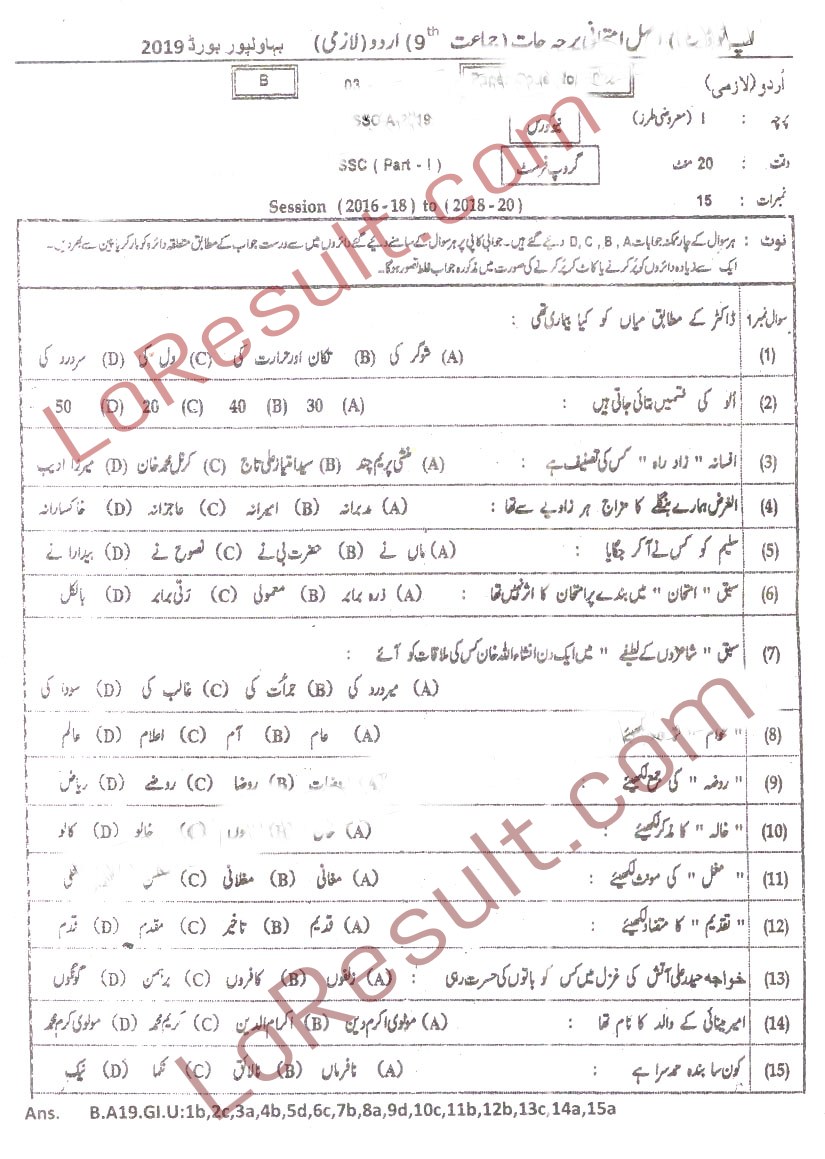 اصل امتحانی پرچہ جات (جماعت 9th) اردو (لازمی) بہاولپور بورڈ 2019
اُردو (لازمی) B
پرچہ : I (معروضی طرز) نیو کورس
وقت : 20 منٹ گروپ فرسٹ SSC ( Part - I )
نمبرات : 15 Session (2016-18) to (2018-20)
نوٹ : ہر سوال کے چار ممکنہ جوابات D, C, B, A دیئے گئے ہیں۔ جوابی کاپی پر ہر سوال کے سامنے دیئے گئے دائروں میں سے درست جواب کے مطابق متعلقہ دائرہ کو مارکر یا پین سے بھر دیں۔
ایک سے زیادہ دائروں کو پُر کرنے یا کاٹ کر پُر کرنے کی صورت میں مذکورہ جواب غلط تصور ہوگا۔
سوال نمبر 1 ڈاکٹر کے مطابق میاں کو کیا بیماری تھی :
(1) (A) شوگر کی (B) تکان اور حرارت کی (C) دل کی (D) سردرد کی
(2) اُلو کی قسمیں بتائی جاتی ہیں : (A) 30 (B) 40 (C) 20 (D) 50
(3) افسانہ " زاد راہ " کس کی تصنیف ہے : (A) منشی پریم چند (B) سید امتیاز علی تاج (C) کرنل محمد خان (D) میرزا ادیب
(4) الغرض ہمارے بنگلے کا مزاج ہر زاویے سے تھا : (A) مدبرانہ (B) امیرانہ (C) عاجزانہ (D) خاکسارانہ
(5) سلیم کو کس نے آ کر جگایا : (A) ماں نے (B) حضرت بی نے (C) نصوح نے (D) بیدارا نے
(6) سبق " امتحان " میں بندے پر امتحان کا اثر نہیں تھا : (A) ذرہ برابر (B) معمولی (C) رتی برابر (D) بالکل
(7) سبق " شاعروں کے لطیفے " میں ایک دن انشاء اللہ خان کس کی ملاقات کو آئے :
(A) میر درد کی (B) جرأت کی (C) غالب کی (D) سودا کی
(8) " عام " لکھیئے : (A) خام (B) آم (C) اعلام (D) عالم
(9) " روضہ " کی جمع لکھیئے : (B) روضا (C) روضے (D) ریاض
(10) " خالہ " کا مذکر لکھیئے : (A) (B) (C) خالو (D) کالو
(11) " مغل " کی مونث لکھیئے : (A) مغانی (B) مغلانی (C)
(12) " تقدیم " کا متضاد لکھیئے : (A) قدیم (B) تاخیر (C) مقدم (D) قدم
(13) خواجہ حیدر علی آتش کی غزل میں کس کو باتوں کی حسرت رہی : (A) زلفوں (B) کافروں (C) برہمن (D) گونگوں
(14) امیر مینائی کے والد کا نام تھا : (A) مولوی اکرم دین (B) اکرام الدین (C) کریم محمد (D) مولوی کرم محمد
(15) کون سا بندہ حمد سرا ہے : (A) نافرماں (B) نالائق (C) نکما (D) نیک
Ans. B.A19.GI.U:1b,2c,3a,4b,5d,6c,7b,8a,9d,10c,11b,12b,13c,14a,15a
LoResult.com
LoResult.com